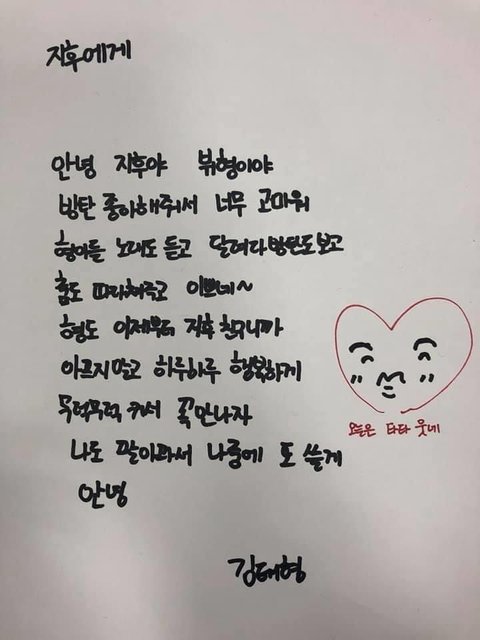 지후에게
안녕 지후야 뷔형이야
방탄 좋아해줘서 너무 고마워
형아들 노래도 듣고 달려라방탄도보고
춤도 따라춰주고 이쁘네~
형도 이제부터 지후 친구니까
아프지말고 하루하루 행복하게
무럭무럭 커서 꼭만나자
오늘은 타타 웃네
나도 팔아파서 나중에 또 쓸게
안녕
김태형